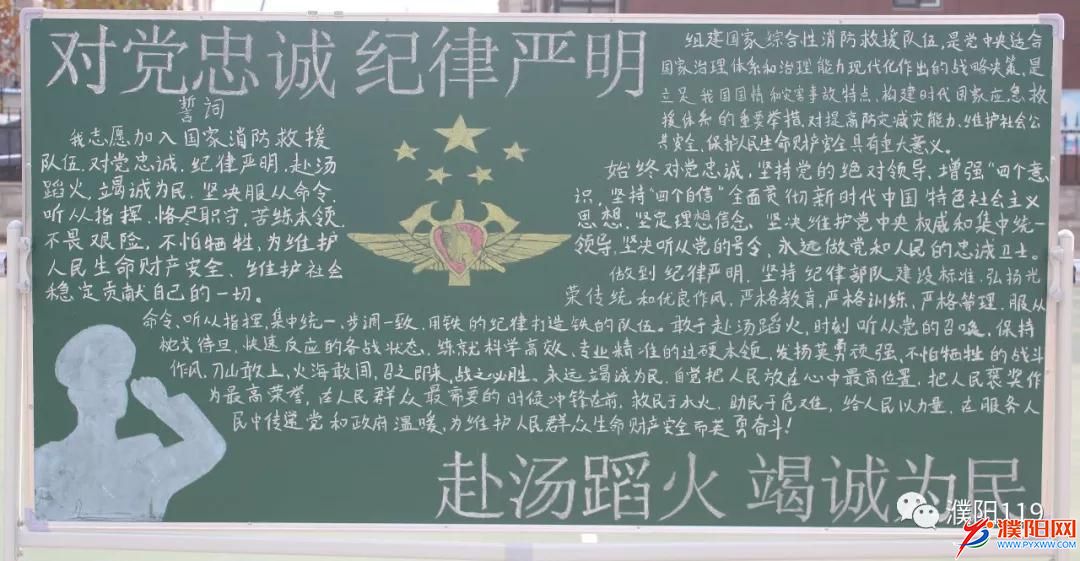 对党忠诚 纪律严明
誓词
我志愿加入国家消防救援
队伍,对党忠诚,纪律严明,赴汤
蹈火,竭诚为民,坚决服从命令、
听从指挥,恪尽职守,苦练本领,
不畏艰险,不怕牺牲,为维护
人民生命财产安全、维护社会
稳定贡献自己的一切。
组建国家综合性消防救援队伍,是党中央适合
国家治理体系和治理能力现代化作出的战略决策,是
立足我国国情和灾害事故特点、构建时代国家应急救
援体系的重要举措,对提高防灾减灾能力、维护社会公
共安全、保护人民生命财产安全具有重大意义。
始终对党忠诚,坚持党的绝对领导,增强“四个意
识,坚持“四个自信”全面贯彻新时代中国特色社会主义
思想,坚定理想信念,坚决维护党中央权威和集中统一
领导,坚决听从党的号令,永远做党和人民的忠诚卫士。
做到纪律严明,坚持纪律部队建设标准,弘扬光
荣传统和优良作风,严格教育,严格训练,严格管理,服从
命令、听从指挥,集中统一,步调一致,用铁的纪律打造铁的队伍。敢于赴汤蹈火,时刻听从党的召唤,保持
枕戈待旦,快速反应的备战状态,练就科学高效、专业精准的过硬本领,发扬英勇顽强、不怕牺牲的战斗
作风,刀山敢上,火海敢闯,召之即来,战之必胜。永远竭诚为民,自觉把人民放在心中最高位置,把人民褒奖作
为最高荣誉,在人民群众最需要的时候冲锋在前,救民于水火,助民于危难,给人民以力量,在服务人
民中传递党和政府温暖,为维护人民群众生命财产安全而英勇奋斗!
赴汤蹈火 竭诚为民
濮阳119
濮阳网
WWW.PYXWW.COM